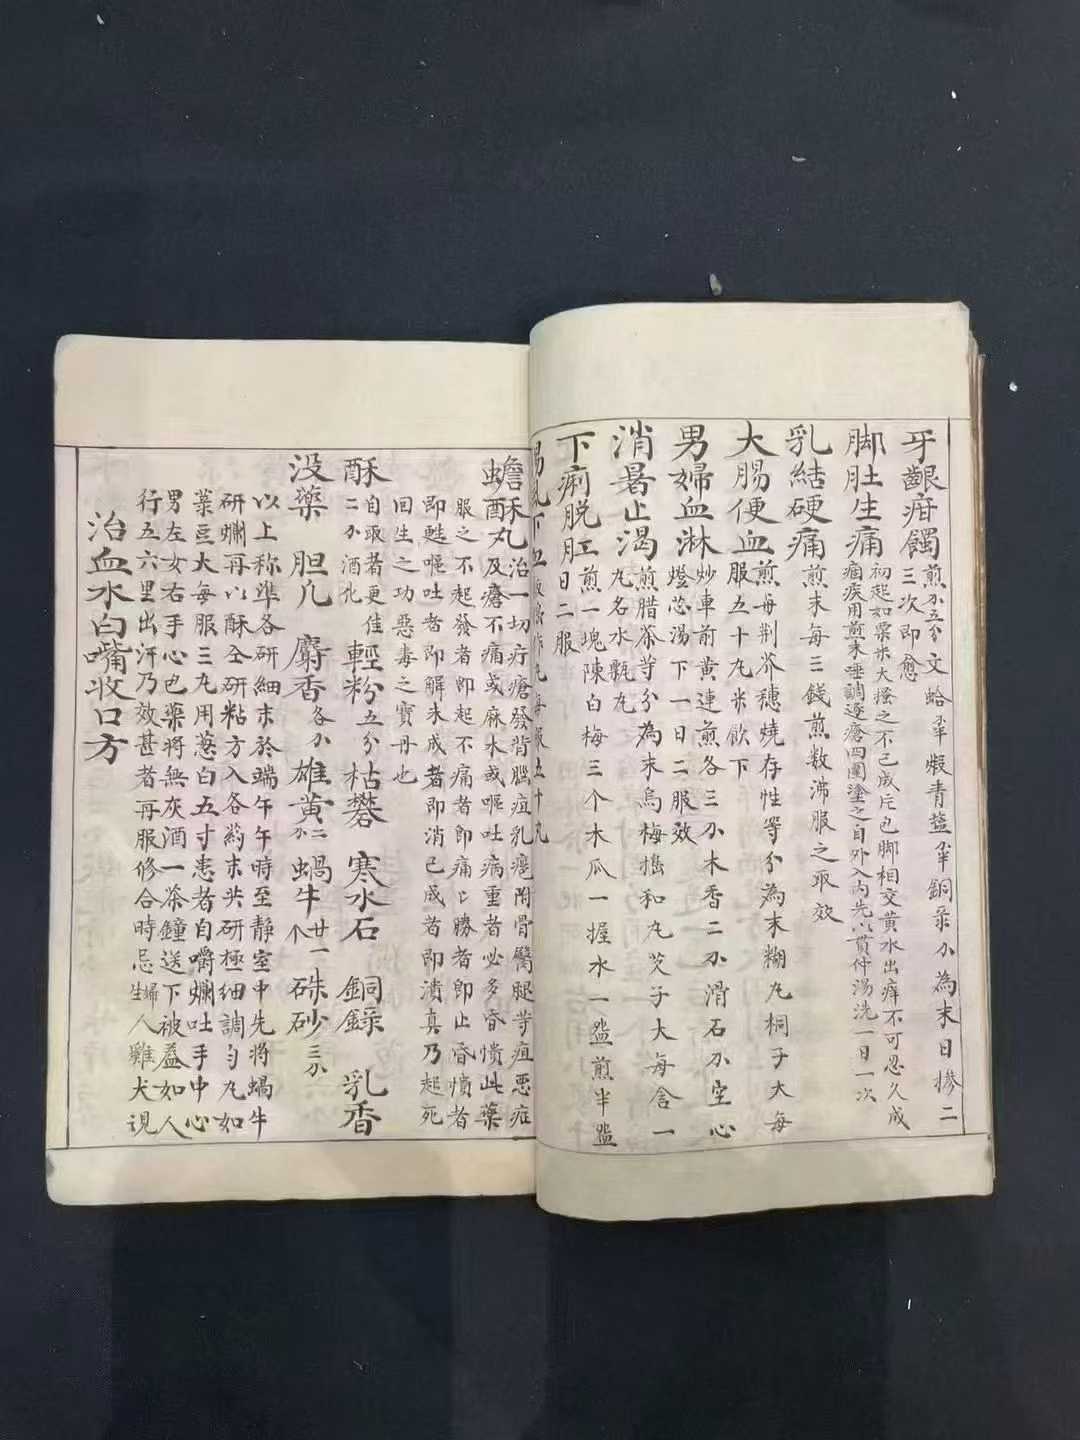 牙齦疳䘌煎分五分文蛤半煅青塩半銅彔分為末日摻二
三次即愈
脚肚生痛初起如粟米大搔之不已成片包脚相交黄水出痒不可忍久成
痼疾用煎末唾調逐瘡四圍塗之自外入内先以貫仲湯洗一日一次
乳結硬痛煎末每三錢煎数沸服之取效
大腸便血煎每荆芥穗燒存性等分為末糊丸桐子大每
服五十丸米飲下
男婦血淋炒車前黄連煎各三分木香二分滑石分空心
燈芯湯下一日二服效
消暑止渴煎腊茶等分為末烏梅搗和丸芡子大每含一
丸名水瓢丸
下痢脱肛煎一塊陳白梅三个木瓜一握水一盌煎半盌
日二服
下血 丸每服五十丸
蟾酥丸治一切疔瘡發背腦疽乳癰附骨臀腿等疽惡症
及瘡不痛或麻木或嘔吐病重者必多昏憒此藥
服之不起發者即起不痛者即痛〻勝者即止昏憒者
即甦嘔吐者即解未成者即消已成者即潰真乃起死
回生之功惡毒之寶丹也
酥二分酒化自取者更佳 輕粉五分 枯礬 寒水石 銅錄 乳香
没藥 胆凡 麝香各分 雄黄二分 蝸牛廿一个 硃砂三分
以上称準各研細末於端午午時至静室中先將蝸牛
研爛再以酥仝研粘方入各药末共研極細調勻丸如
菉豆大每服三丸用葱白五寸患者自嚼爛吐手中心
男左女右手心包藥將無灰酒一茶鐘送下被蓋如人
行五六里出汗乃效甚者再服修合時忌婦人雞犬視
治血水白嘴收口方